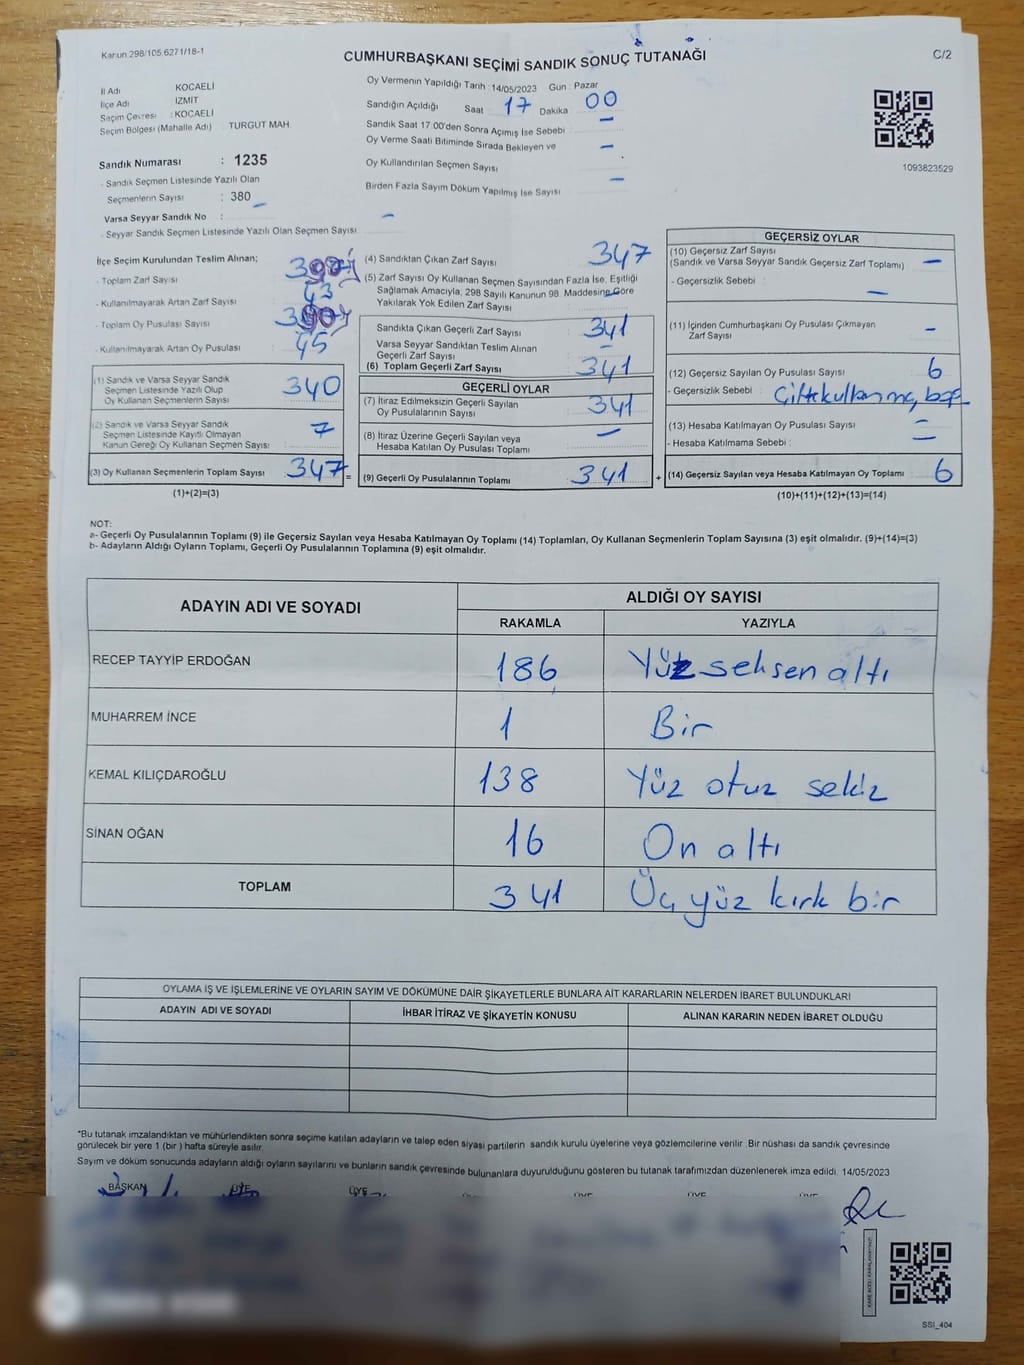 Kanun 298/105,6271/18-1
CUMHURBAŞKANI SEÇİMİ SANDIK SONUÇ TUTANAĞI
C/2
İl Adı KOCAELİ
İlçe Adı İZMİT
Seçim Çevresi : KOCAELİ
Seçim Bölgesi (Mahalle Adı) TURGUT MAH.
Sandık Numarası : 1235
- Sandık Seçmen Listesinde Yazılı Olan
Seçmenlerin Sayısı : 380
Varsa Seyyar Sandık No : -
- Seyyar Sandık Seçmen Listesinde Yazılı Olan Seçmen Sayısı -
Oy Vermenin Yapıldığı Tarih : 14/05/2023 Gün : Pazar
Sandığın Açıldığı Saat 17 Dakika 00
Sandık Saat 17 00'den Sonra Açımış İse Sebebi : -
Oy Verme Saati Bitiminde Sırada Bekleyen ve
Oy Kullandırılan Seçmen Sayısı : -
Birden Fazla Sayım Döküm Yapılmış İse Sayısı -
1093823529
İlçe Seçim Kurulundan Teslim Alınan;
- Toplam Zarf Sayısı
- Kullanılmayarak Artan Zarf Sayısı : 43
- Toplam Oy Pusulası Sayısı
- Kullanılmayarak Artan Oy Pusulası : 45
(1) Sandık ve Varsa Seyyar Sandık
Seçmen Listesinde Yazılı Olup
Oy Kullanan Seçmenlerin Sayısı : 340
(2) Sandık ve Varsa Seyyar Sandık
Seçmen Listesinde Kayıtlı Olmayan
Kanun Gereği Oy Kullanan Seçmen Sayısı : 7
(3) Oy Kullanan Seçmenlerin Toplam Sayısı 347 =
(1)+(2)=(3)
(4) Sandıktan Çıkan Zarf Sayısı 347
(5) Zarf Sayısı Oy Kullanan Seçmen Sayısından Fazla İse, Eşitliği
Sağlamak Amacıyla, 298 Sayılı Kanunun 98. Maddesine Göre
Yakılarak Yok Edilen Zarf Sayısı : -
Sandıkta Çıkan Geçerli Zarf Sayısı 341
Varsa Seyyar Sandıktan Teslim Alınan
Geçerli Zarf Sayısı -
(6) Toplam Geçerli Zarf Sayısı 341
GEÇERLİ OYLAR
(7) İtiraz Edilmeksizin Geçerli Sayılan
Oy Pusulalarının Sayısı 341
(8) İtiraz Üzerine Geçerli Sayılan veya
Hesaba Katılan Oy Pusulası Toplamı -
(9) Geçerli Oy Pusulalarının Toplamı 341 +
GEÇERSİZ OYLAR
(10) Geçersiz Zarf Sayısı
(Sandık ve Varsa Seyyar Sandık Geçersiz Zarf Toplamı) -
- Geçersizlik Sebebi : -
(11) İçinden Cumhurbaşkanı Oy Pusulası Çıkmayan
Zarf Sayısı -
(12) Geçersiz Sayılan Oy Pusulası Sayısı 6
- Geçersizlik Sebebi : Çift kullanma, boş
(13) Hesaba Katılmayan Oy Pusulası Sayısı : -
- Hesaba Katılmama Sebebi : -
(14) Geçersiz Sayılan veya Hesaba Katılmayan Oy Toplamı 6
(10)+(11)+(12)+(13)=(14)
NOT:
a- Geçerli Oy Pusulalarının Toplamı (9) ile Geçersiz Sayılan veya Hesaba Katılmayan Oy Toplamı (14) Toplamları, Oy Kullanan Seçmenlerin Toplam Sayısına (3) eşit olmalıdır. (9)+(14)=(3)
b- Adayların Aldığı Oyların Toplamı, Geçerli Oy Pusulalarının Toplamına (9) eşit olmalıdır.
ADAYIN ADI VE SOYADI ALDIĞI OY SAYISI
RAKAMLA YAZIYLA
RECEP TAYYİP ERDOĞAN 186 Yüz seksen altı
MUHARREM İNCE 1 Bir
KEMAL KILIÇDAROĞLU 138 Yüz otuz sekiz
SİNAN OĞAN 16 On altı
TOPLAM 341 Üç yüz kırk bir
OYLAMA İŞ VE İŞLEMLERİNE VE OYLARIN SAYIM VE DÖKÜMÜNE DAİR ŞİKAYETLERLE BUNLARA AİT KARARLARIN NELERDEN İBARET BULUNDUKLARI
ADAYIN ADI VE SOYADI İHBAR İTİRAZ VE ŞİKAYETİN KONUSU ALINAN KARARIN NEDEN İBARET OLDUĞU
*Bu tutanak imzalandıktan ve mühürlendikten sonra seçime katılan adayların ve talep eden siyasi partilerin sandık kurulu üyelerine veya gözlemcilerine verilir. Bir nüshası da sandık çevresinde
görülecek bir yere 1 (bir) hafta süreyle asılır.
Sayım ve döküm sonucunda adayların aldığı oyların sayılarını ve bunların sandık çevresinde bulunanlara duyurulduğunu gösteren bu tutanak tarafımızdan düzenlenerek imza edildi. 14/05/2023
BAŞKAN ÜYE ÜYE ÜYE ÜYE ÜYE
SSI_404